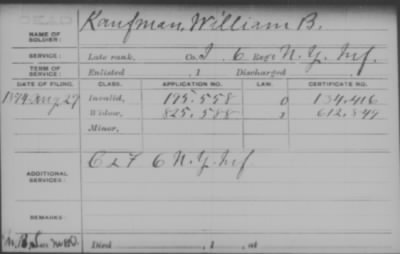 NAME OF SOLDIER: Kaufman, William B.
SERVICE: Late rank, Co. I 6 Reg't N.Y. Inf.
TERM OF SERVICE: Enlisted , 1 Discharged
DATE OF FILING. CLASS. APPLICATION NO. LAW. CERTIFICATE NO.
Invalid, 195.558 134.416
Widow, 825.588 612.849
Minor,
ADDITIONAL SERVICES: 6 N.Y. Inf
REMARKS:
Died , 1 , at